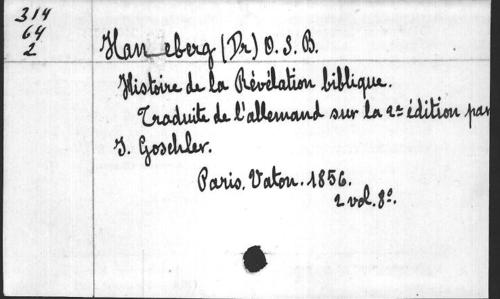 314
64
2
Han eberg (Dr) O. S. B.
Histoire de la Révélation biblique.
Traduite de l'allemand sur la 2e édition par
I. Goschler.
Paris. Vaton. 1856.
2 vol. 8o.